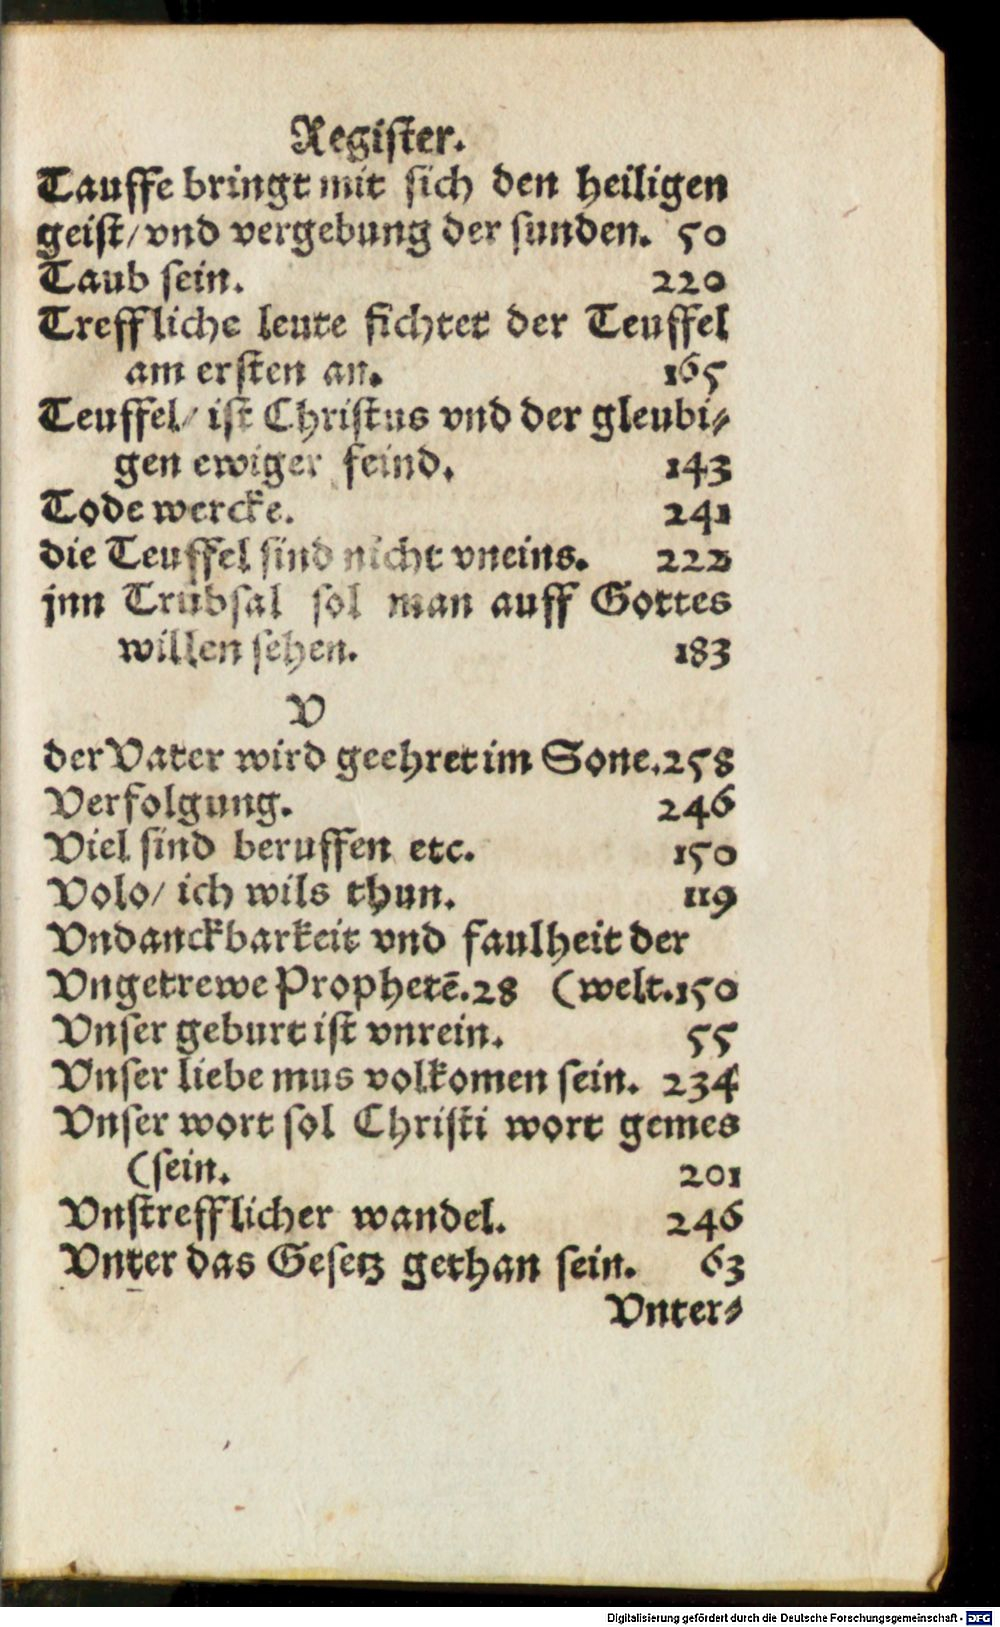 Register.
Tauffe bringt mit sich den heiligen
geist/ vnd vergebung der sunden. 50
Taub sein. 220
Treffliche leute fichtet der Teuffel
am ersten an. 165
Teuffel/ ist Christus vnd der gleubi-
gen ewiger feind. 143
Tode wercke. 241
die Teuffel sind nicht vneins. 222
jnn Trübsal sol man auff Gottes
willen sehen. 183
V
der Vater wird geehret im Sone. 258
Verfolgung. 246
Viel sind beruffen etc. 150
Volo/ ich wils thun. 119
Vndanckbarkeit vnd faulheit der
Vngetrewe Prophetē. 28 (welt. 150
Vnser geburt ist vnrein. 55
Vnser liebe mus volkomen sein. 234
Vnser wort sol Christi wort gemes
(sein. 201
Vnstrefflicher wandel. 246
Vnter das Gesetz gethan sein. 63
Vnter-
Digitalisierung gefördert durch die Deutsche Forschungsgemeinschaft - DFG